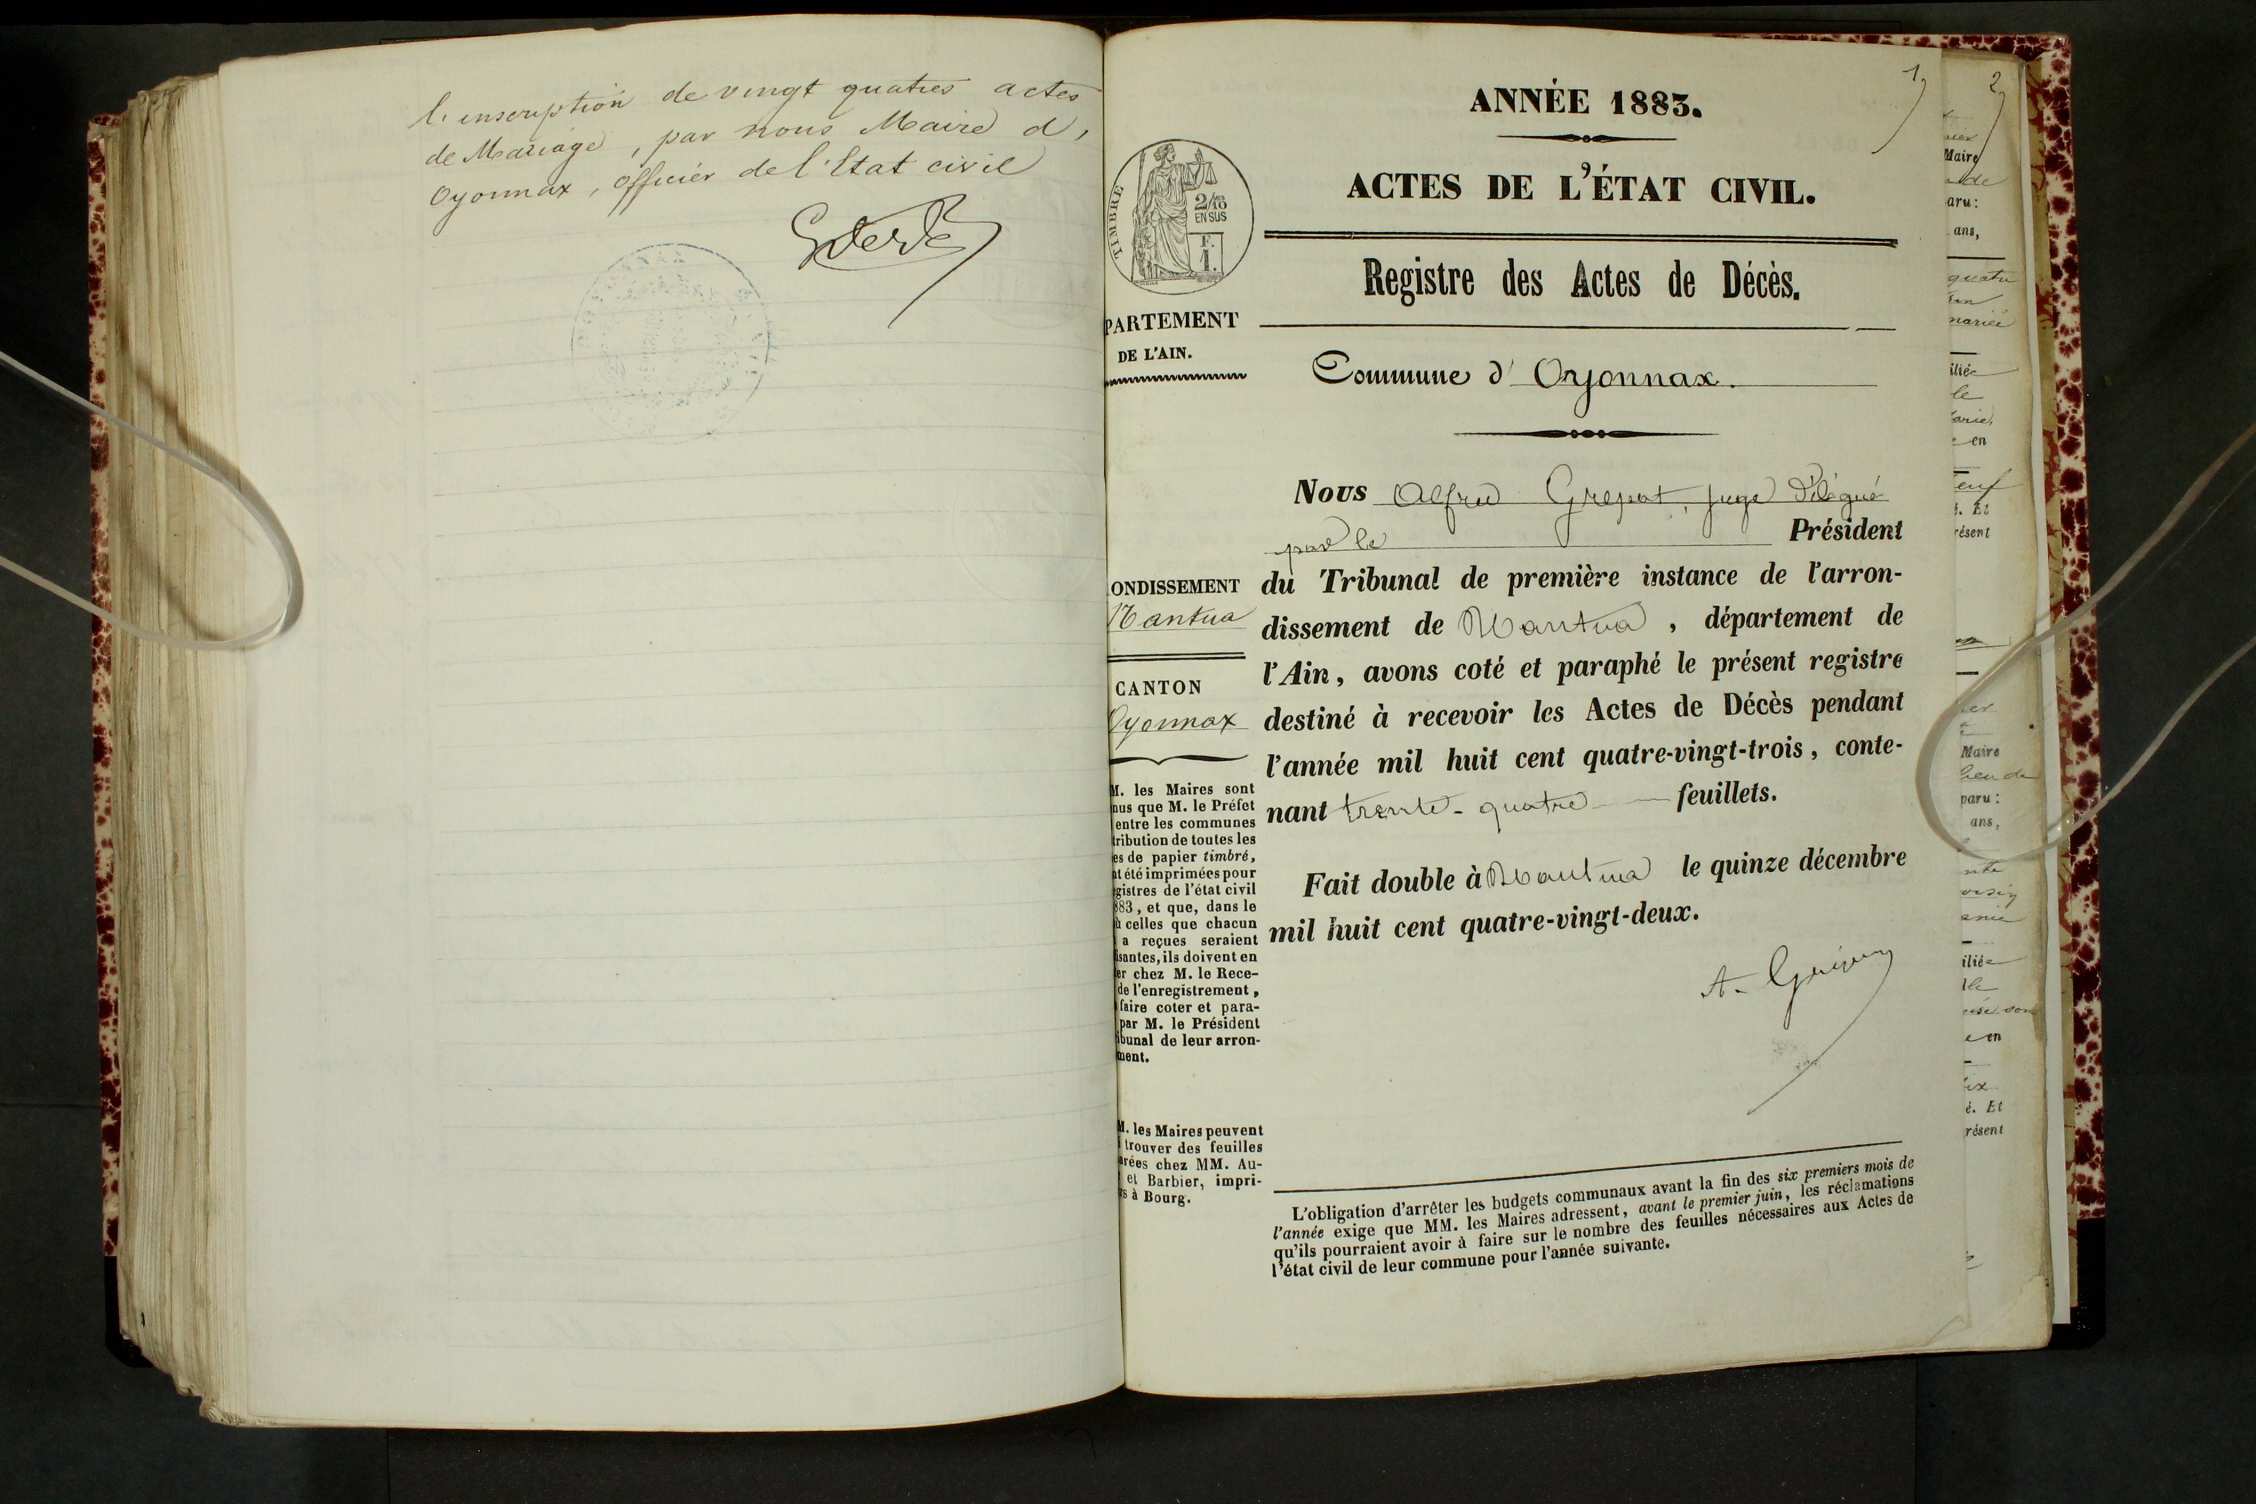 l'inscription de vingt quatres actes
de Mariage, par nous Maire d,
Oyonnax, officier de l'Etat civil
1
2
ANNÉE 1883.
ACTES DE L'ÉTAT CIVIL.
TIMBRE
2/10
EN SUS
F.
1.
Registre des Actes de Décès.
PARTEMENT
DE L'AIN.
Commune d' Oyonnax.
Nous Alfred juge Délégué
par le Président
ONDISSEMENT
Nantua
du Tribunal de première instance de l'arron-
dissement de Nantua, département de
l'Ain, avons coté et paraphé le présent registre
destiné à recevoir les Actes de Décès pendant
l'année mil huit cent quatre-vingt-trois, conte-
nant trente-quatre feuillets.
Fait double à Nantua le quinze décembre
mil huit cent quatre-vingt-deux.
CANTON
Oyonnax
M. les Maires sont
nus que M. le Préfet
entre les communes
tribution de toutes les
es de papier timbré,
nt été imprimées pour
gistres de l'état civil
883, et que, dans le
ù celles que chacun
a reçues seraient
isantes, ils doivent en
er chez M. le Rece-
de l'enregistrement,
faire coter et para-
par M. le Président
ibunal de leur arron-
ment.
M. les Maires peuvent
trouver des feuilles
arées chez MM. Au-
et Barbier, impri-
rs à Bourg.
L'obligation d'arrêter les budgets communaux avant la fin des six premiers mois de
l'année exige que MM. les Maires adressent, avant le premier juin, les réclamations
qu'ils pourraient avoir à faire sur le nombre des feuilles nécessaires aux Actes de
l'état civil de leur commune pour l'année suivante.
Maire
de
aru:
ans,
quatre
mariée
iliée
le
en
é. Et
résent
Maire
paru:
ans,
iliée
en
é. Et
résent